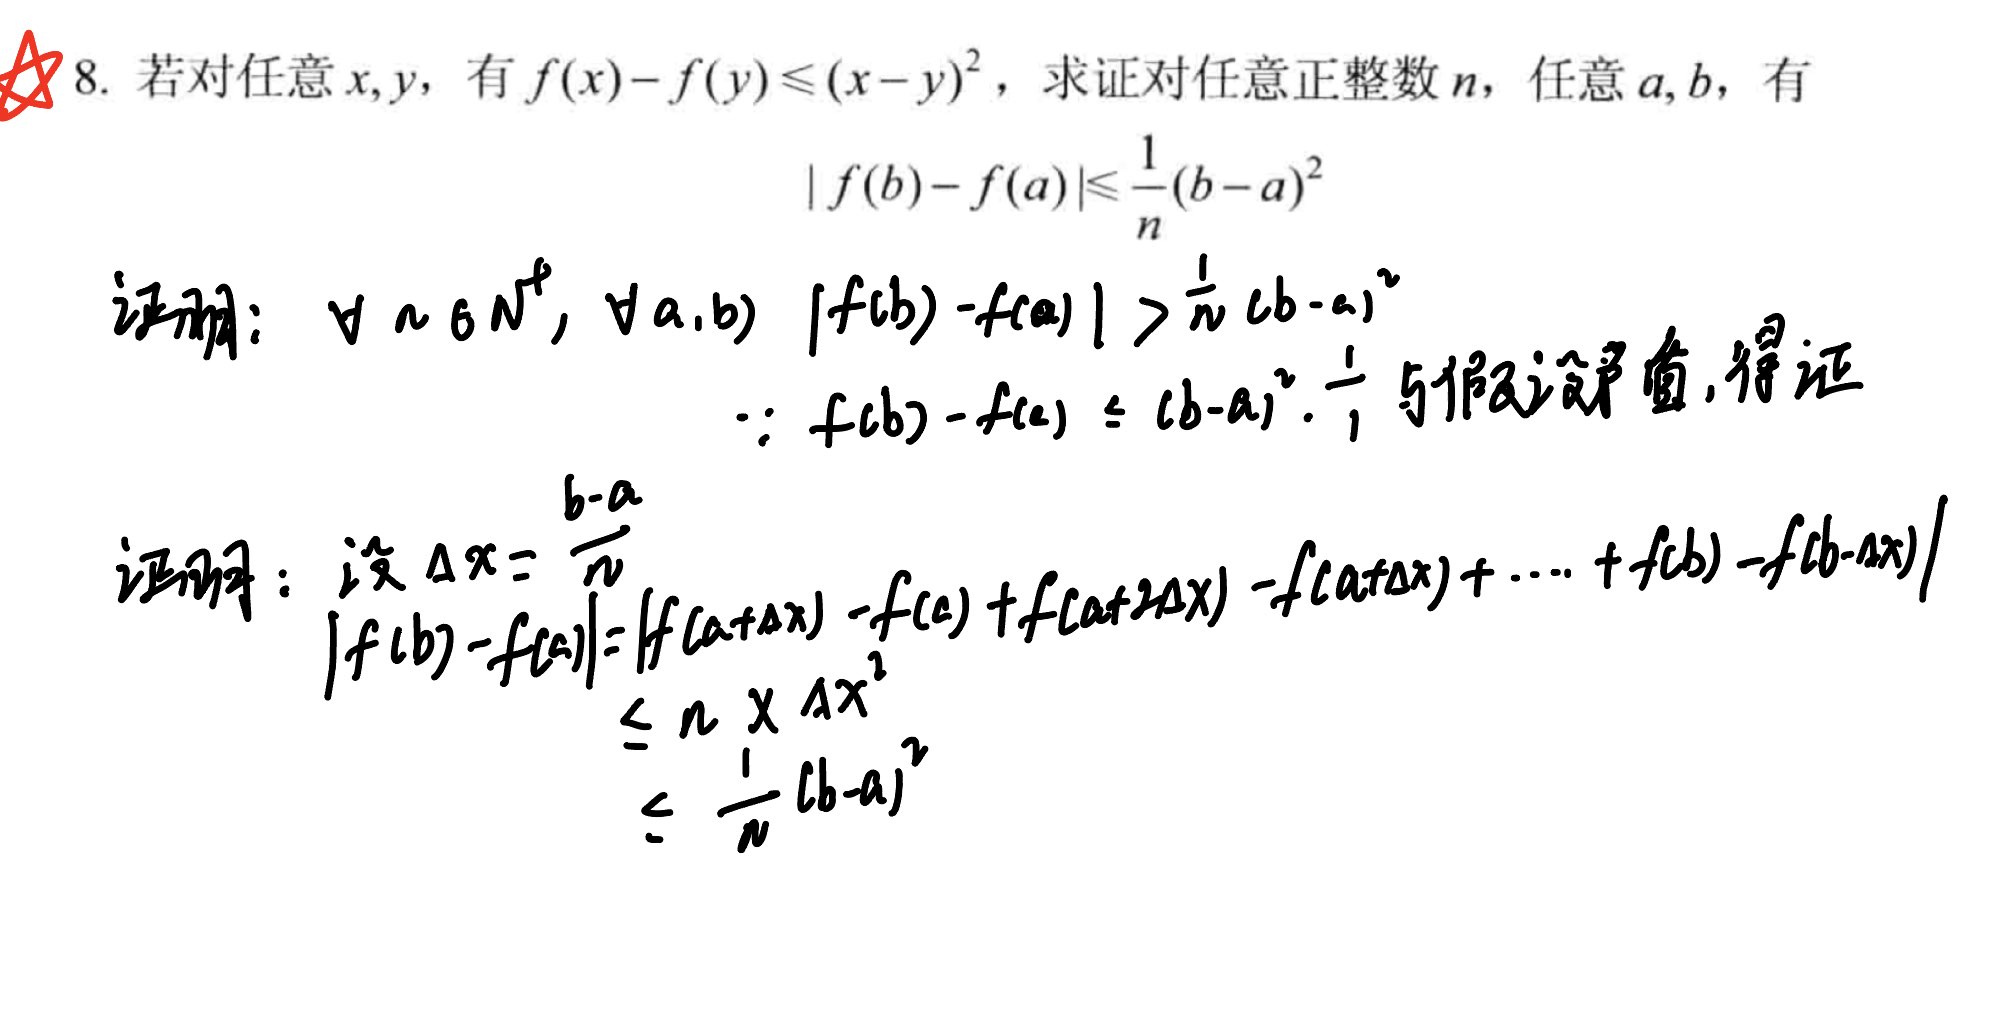 8. 若对任意 x, y，有 f(x) − f(y) ⩽ (x − y)²，求证对任意正整数 n，任意 a, b，有
| f(b) − f(a) |⩽ 1/n (b − a)²
证明： ∀ n ∈ N⁺, ∀ a, b, |f(b) - f(a)| > 1/n (b-a)²
∵ f(b) - f(a) ≤ (b-a)² · 1/1 与假设矛盾，得证
证明： 设 Δx = b-a/n
|f(b) - f(a)| = |f(a+Δx) - f(a) + f(a+2Δx) - f(a+Δx) + ···· + f(b) - f(b-Δx)|
≤ n × Δx²
≤ 1/n (b-a)²